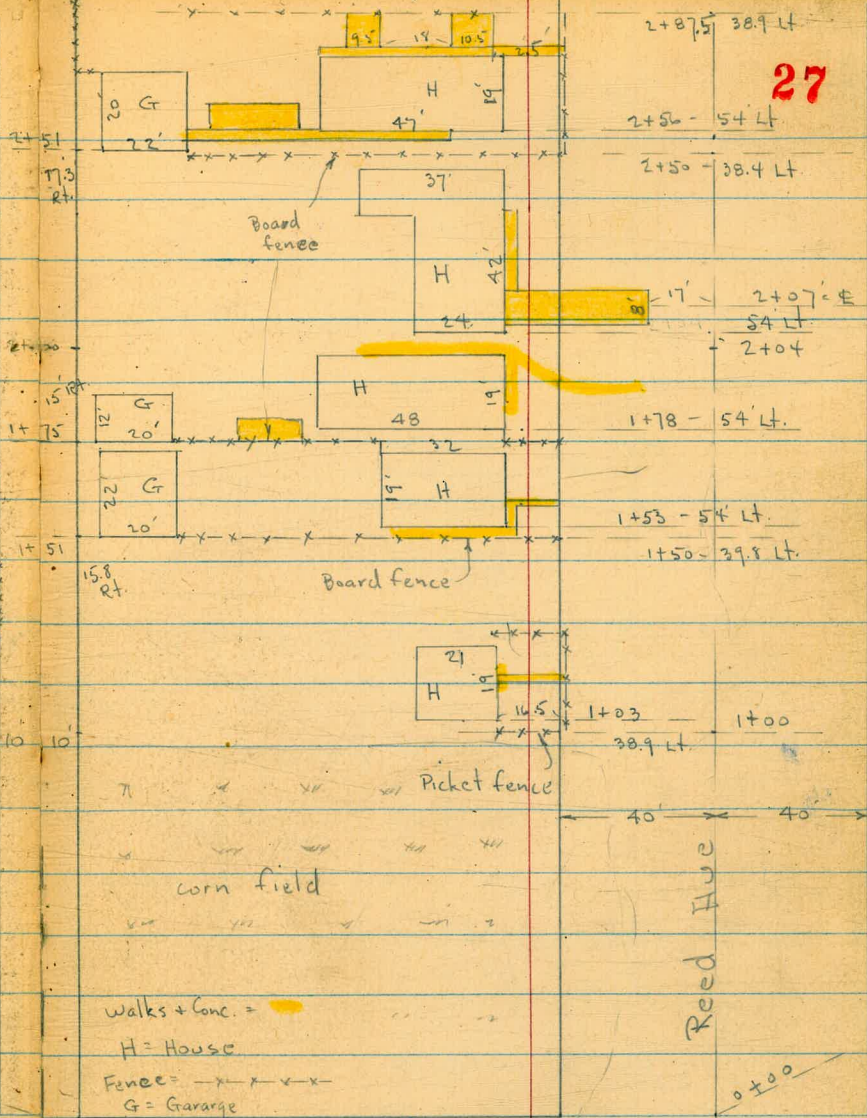 2+87.5 38.9 Lt
27
9.5 18 10.5
2.5'
20' G
22'
H
19'
47'
2+56 - 54' Lt
2+51
17.3
Rt.
2+50 - 38.4 Lt
37'
Board
fence
H
42'
24
8'
17'
2+07' ℄
54' Lt
2+00
2+04
15' Rt
12' G
20'
1+75
H
19'
48
1+78 - 54' Lt.
32
22' G
20'
19' H
1+53 - 54' Lt.
1+51
1+50 - 39.8 Lt.
15.8
Rt.
Board fence
21
H
19'
16.5
1+03
1+00
38.9 Lt.
10 10'
Picket fence
40' 40'
corn field
Reed Hue
Walks + Conc. =
H = House
Fence = -x-x-x-x-
G = Gararge
0+00